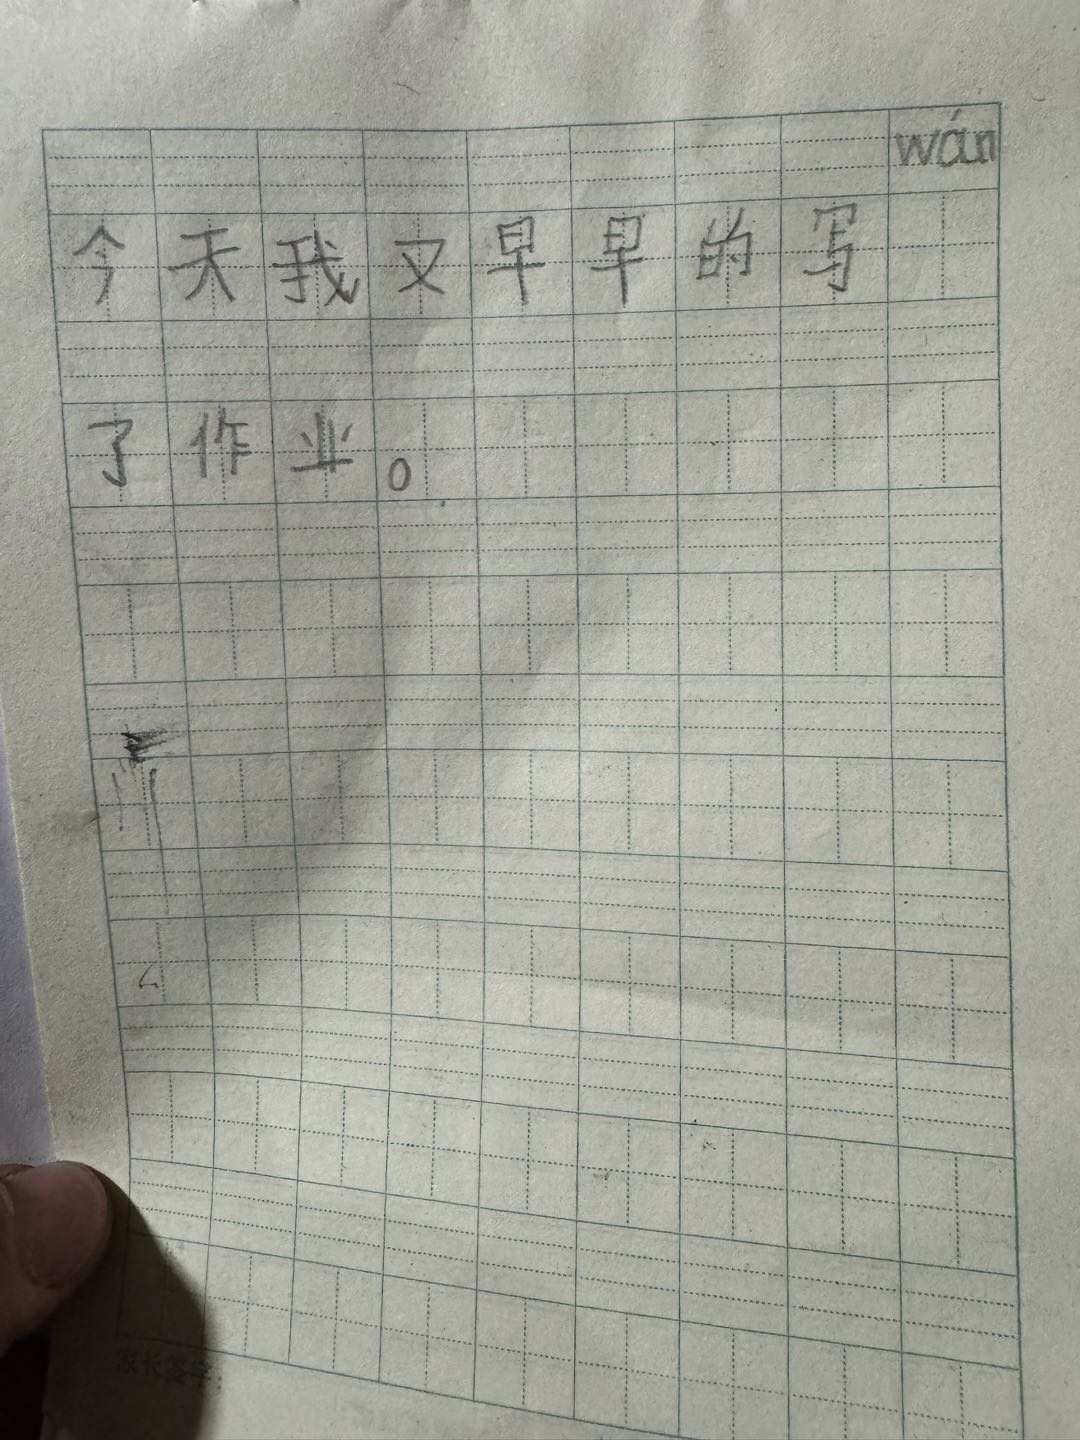 wán
今天我又早早的写
了作业。
家长签字: